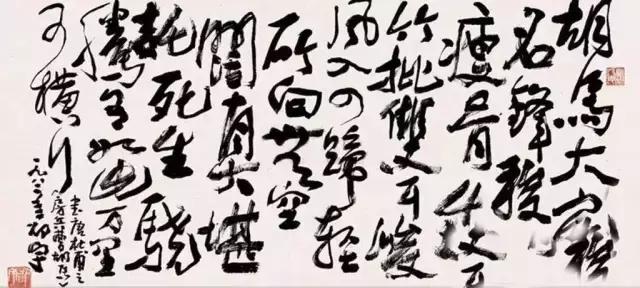 胡馬大宛
名鋒稜
瘦骨成
竹批雙耳峻
風入四蹄輕
所向無空
闊真堪
託死生驍
騰有如此万里
可横行
書唐杜甫之
房兵曹胡馬
一九八年